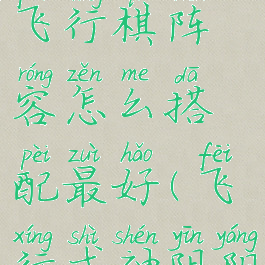 飞行棋阵
róng zěn me dā
容怎么搭
pèi zuì hǎo ( fēi
配最好(飞
xíng shì shén yīn yáng
行式神阴阳